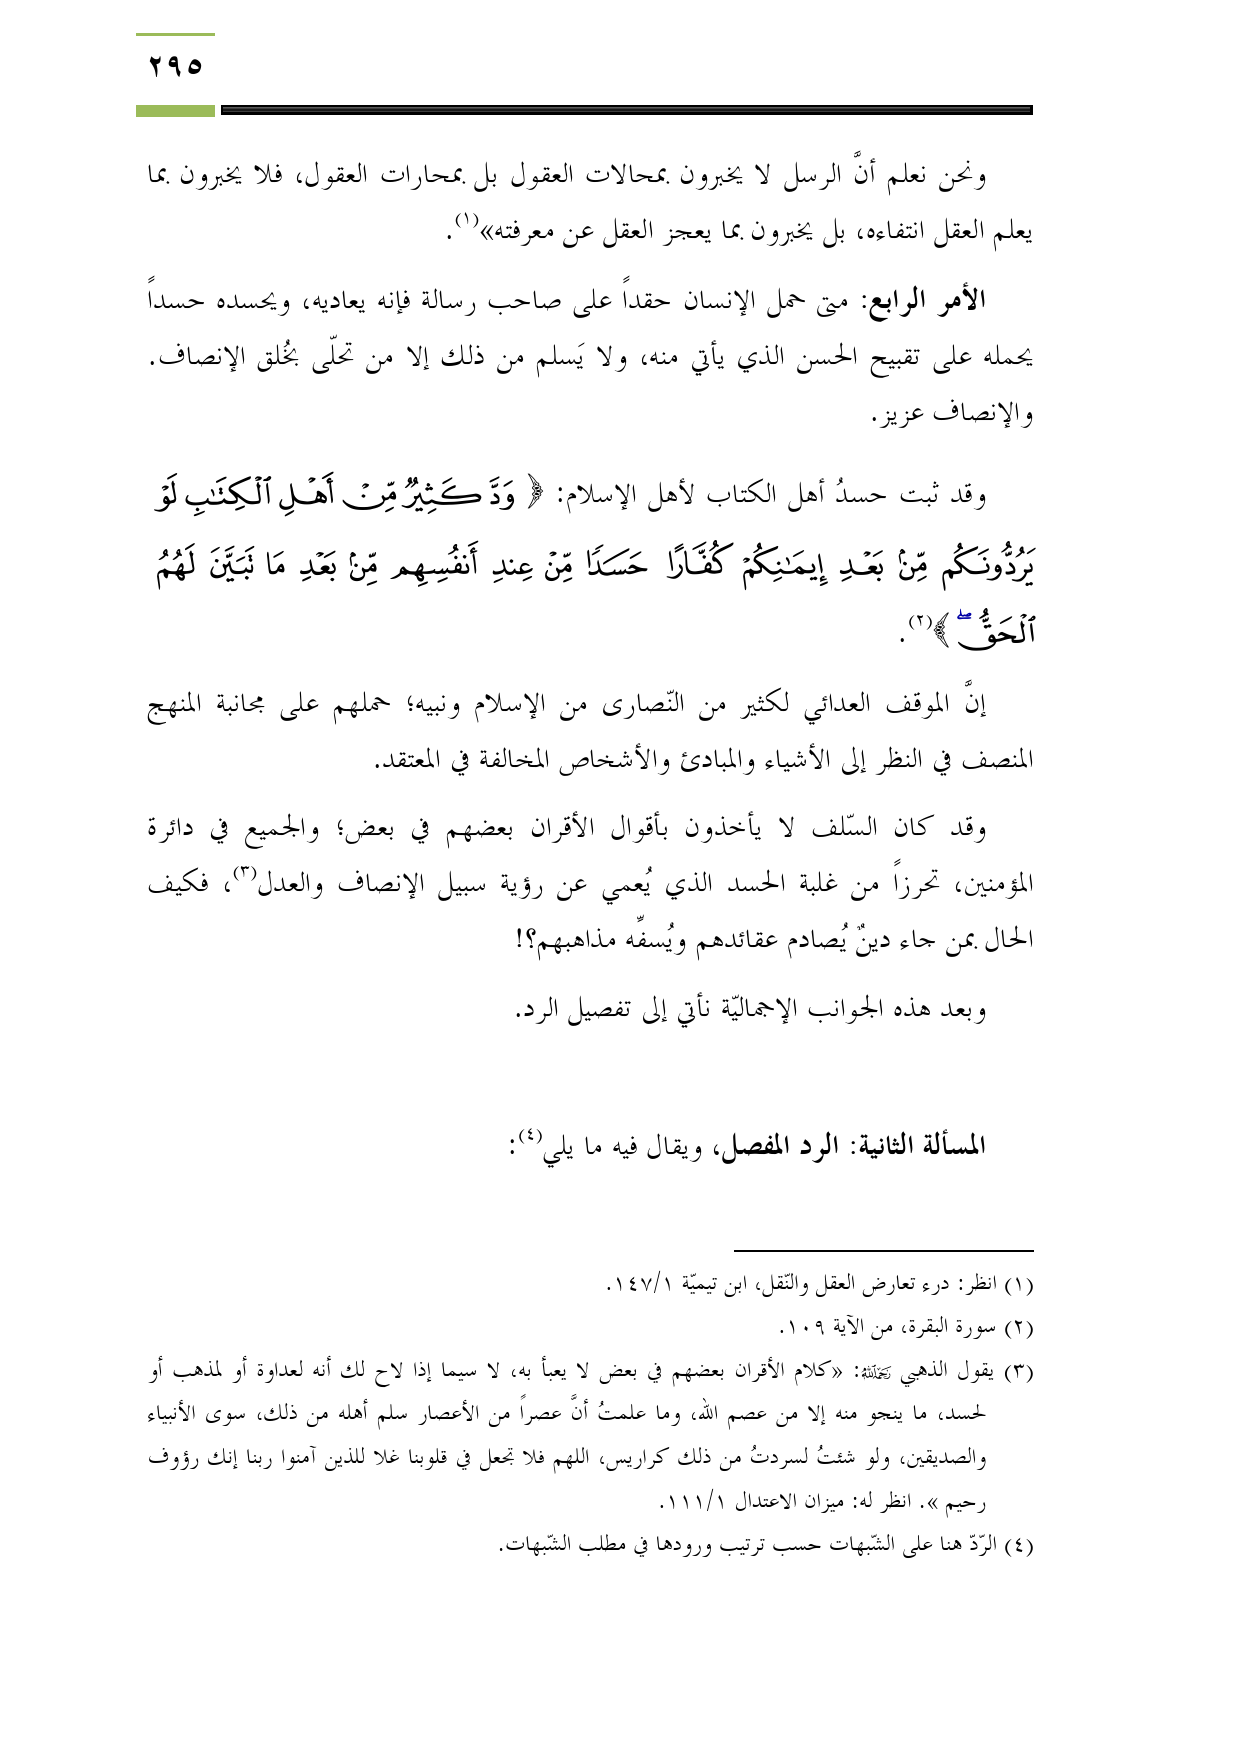 ٢٩٥
ونحن نعلم أنَّ الرسل لا يخبرون بمحالات العقول بل بمحارات العقول، فلا يخبرون بما
يعلم العقل انتفاءه، بل يخبرون بما يعجز العقل عن معرفته»(١).
الأمر الرابع: متى حمل الإنسان حقداً على صاحب رسالة فإنه يعاديه، ويحسده حسداً
يحمله على تقبيح الحسن الذي يأتي منه، ولا يَسلم من ذلك إلا من تحلّى بخُلق الإنصاف.
والإنصاف عزيز.
وقد ثبت حسدُ أهل الكتاب لأهل الإسلام: ﴿ وَدَّ كَثِيرٌ مِّنْ أَهْلِ ٱلْكِتَٰبِ لَوْ
يَرُدُّونَكُم مِّنۢ بَعْدِ إِيمَٰنِكُمْ كُفَّارًا حَسَدًا مِّنْ عِندِ أَنفُسِهِم مِّنۢ بَعْدِ مَا تَبَيَّنَ لَهُمُ
ٱلْحَقُّ ۖ ﴾(٢).
إنَّ الموقف العدائي لكثير من النّصارى من الإسلام ونبيه؛ حملهم على مجانبة المنهج
المنصف في النظر إلى الأشياء والمبادئ والأشخاص المخالفة في المعتقد.
وقد كان السّلف لا يأخذون بأقوال الأقران بعضهم في بعض؛ والجميع في دائرة
المؤمنين، تحرزاً من غلبة الحسد الذي يُعمي عن رؤية سبيل الإنصاف والعدل(٣)، فكيف
الحال بمن جاء دينٌ يُصادم عقائدهم ويُسفِّه مذاهبهم؟!
وبعد هذه الجوانب الإجماليّة نأتي إلى تفصيل الرد.
المسألة الثانية: الرد المفصل، ويقال فيه ما يلي(٤):
(١) انظر: درء تعارض العقل والنّقل، ابن تيميّة ١٤٧/١.
(٢) سورة البقرة، من الآية ١٠٩.
(٣) يقول الذهبي رَحِمَهُ اللهُ: «كلام الأقران بعضهم في بعض لا يعبأ به، لا سيما إذا لاح لك أنه لعداوة أو لمذهب أو
لحسد، ما ينجو منه إلا من عصم الله، وما علمتُ أنَّ عصراً من الأعصار سلم أهله من ذلك، سوى الأنبياء
والصديقين، ولو شئتُ لسردتُ من ذلك كراريس، اللهم فلا تجعل في قلوبنا غلا للذين آمنوا ربنا إنك رؤوف
رحيم ». انظر له: ميزان الاعتدال ١١١/١.
(٤) الرّدّ هنا على الشّبهات حسب ترتيب ورودها في مطلب الشّبهات.